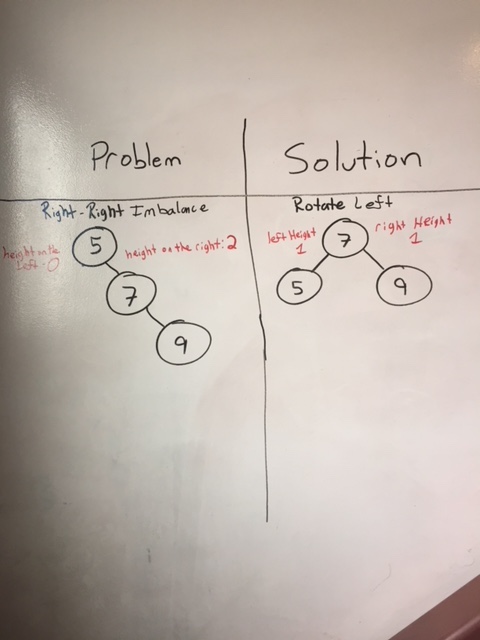 Problem
Solution
Right-Right Imbalance
height on the
Left: 0
5
height on the right: 2
7
9
Rotate Left
left Height
1
7
right Height
1
5
9